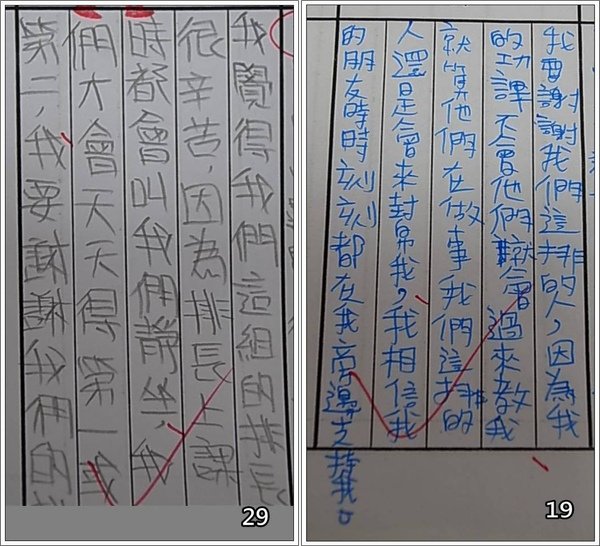 我覺得我們這組的排長
很辛苦，因為排長上課
時都會叫我們靜坐，我
們大會天天得第一我
第二，我要謝謝我們的
29
我要謝謝我們這排的人，因為我
的功課不會他們就會過來教我
就算他們在做事我們這排的
人還是會來封帛我，我相信我
的朋友時時刻刻都在我旁邊支持我。
19